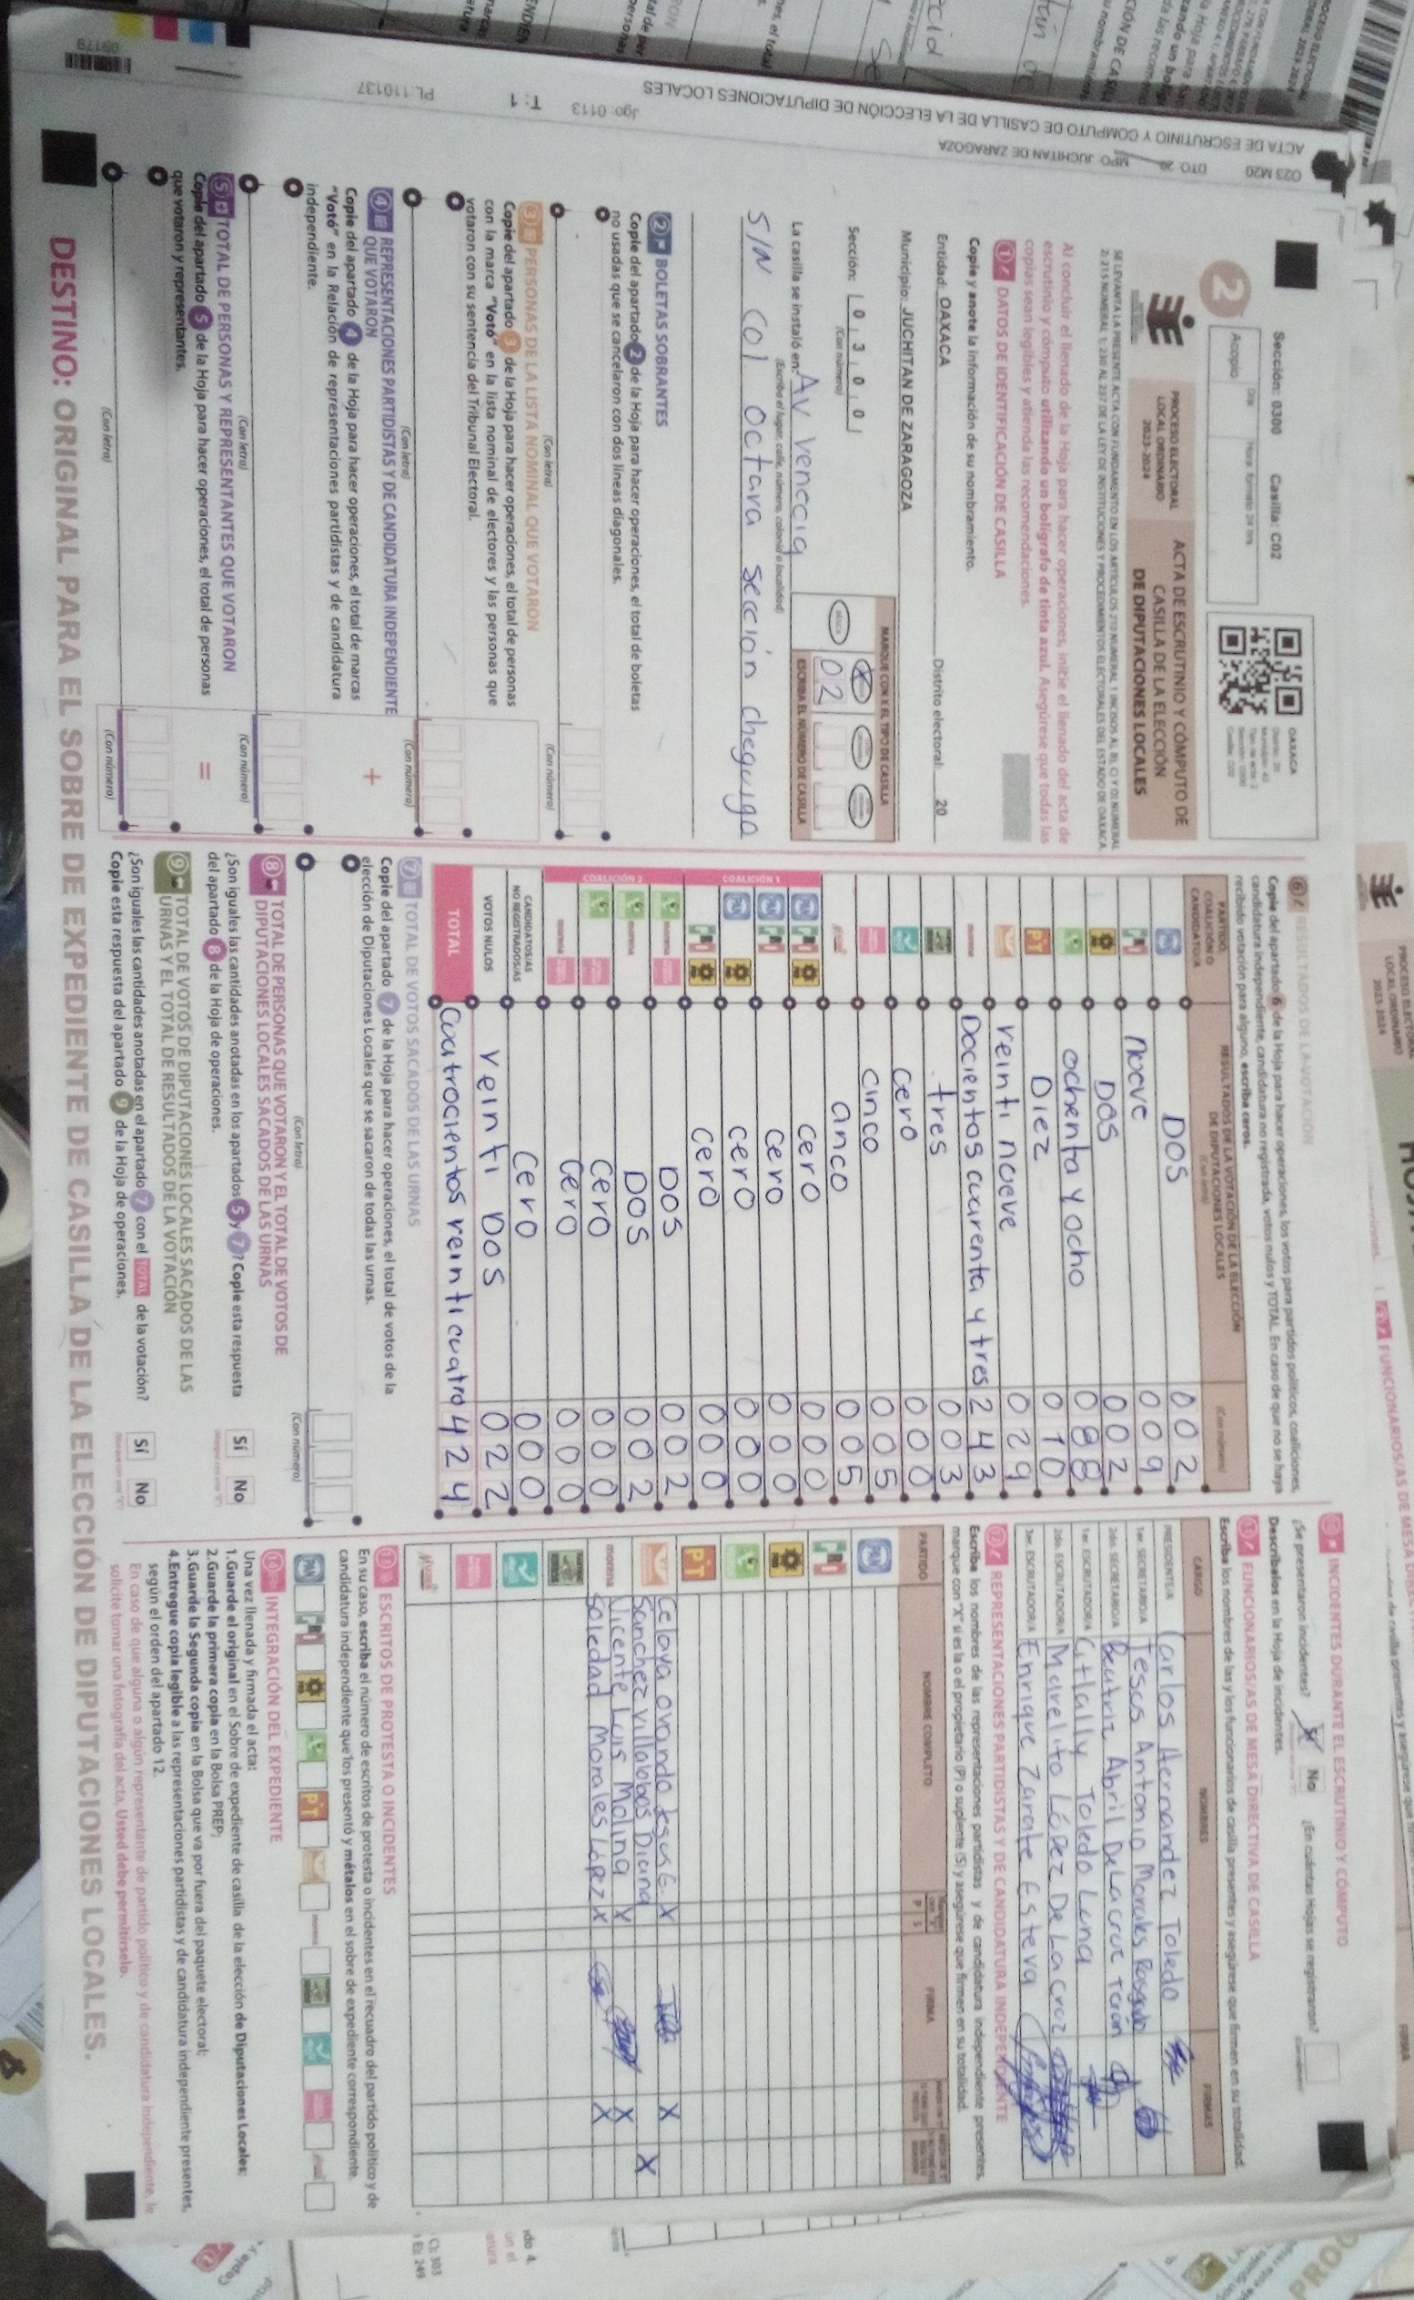 Sección: 0300 Casilla: C02
OAXACA
2
Acopio
PROCESO ELECTORAL
LOCAL ORDINARIO
2023-2024
ACTA DE ESCRUTINIO Y CÓMPUTO DE
CASILLA DE LA ELECCIÓN
DE DIPUTACIONES LOCALES
Al concluir el llenado de la Hoja para hacer operaciones, inicie el llenado del acta de
escrutinio y cómputo utilizando un bolígrafo de tinta azul. Asegúrese que todas las
copias sean legibles y atienda las recomendaciones.
1 DATOS DE IDENTIFICACIÓN DE CASILLA
Copie y anote la información de su nombramiento.
Entidad: OAXACA Distrito electoral: 20
Municipio: JUCHITAN DE ZARAGOZA
MARQUE CON X EL TIPO DE CASILLA
Sección: 0 3 0 0
(Con número)
02
ESCRIBA EL NÚMERO DE CASILLA
La casilla se instaló en: Av venecia
(Escriba el lugar, calle, número, colonia o localidad)
SIN COl Octava sección cheguiga
2 BOLETAS SOBRANTES
Copie del apartado 2 de la Hoja para hacer operaciones, el total de boletas
no usadas que se cancelaron con dos líneas diagonales.
(Con letra) (Con número)
3 PERSONAS DE LA LISTA NOMINAL QUE VOTARON
Copie del apartado 3 de la Hoja para hacer operaciones, el total de personas
con la marca "Votó" en la lista nominal de electores y las personas que
votaron con su sentencia del Tribunal Electoral.
(Con letra) (Con número)
+
4 REPRESENTACIONES PARTIDISTAS Y DE CANDIDATURA INDEPENDIENTE
QUE VOTARON
Copie del apartado 4 de la Hoja para hacer operaciones, el total de marcas
"Votó" en la Relación de representaciones partidistas y de candidatura
independiente.
(Con letra) (Con número)
5 TOTAL DE PERSONAS Y REPRESENTANTES QUE VOTARON
Copie del apartado 5 de la Hoja para hacer operaciones, el total de personas
que votaron y representantes.
=
(Con letra) (Con número)
6 RESULTADOS DE LA VOTACIÓN
Copie del apartado 6 de la Hoja para hacer operaciones, los votos para partidos políticos, coaliciones,
candidatura independiente, candidatura no registrada, votos nulos y TOTAL. En caso de que no se haya
recibido votación para alguno, escriba ceros.
PARTIDO, COALICIÓN O CANDIDATO/A
RESULTADOS DE LA VOTACIÓN DE LA ELECCIÓN
DE DIPUTACIONES LOCALES
(Con letra) (Con número)
DOS 002
noeve 009
DOS 002
ochenta y ocho 088
Diez 010
veinti nueve 029
Docientos cuarenta y tres 243
tres 003
cero 000
cinco 005
cinco 005
COALICIÓN 1
cero 000
cero 000
cero 000
cero 000
COALICIÓN 2
DOS 002
DOS 002
cero 000
cero 000
CANDIDATOS/AS
NO REGISTRADOS/AS
cero 000
VOTOS NULOS veinti DOS 022
TOTAL Cuatrocientos veinticuatro 424
7 TOTAL DE VOTOS SACADOS DE LAS URNAS
Copie del apartado 7 de la Hoja para hacer operaciones, el total de votos de la
elección de Diputaciones Locales que se sacaron de todas las urnas.
(Con letra) (Con número)
8 TOTAL DE PERSONAS QUE VOTARON Y EL TOTAL DE VOTOS DE
DIPUTACIONES LOCALES SACADOS DE LAS URNAS
¿Son iguales las cantidades anotadas en los apartados 5 y 7? Copie esta respuesta
del apartado 8 de la Hoja de operaciones.
Sí No
9 TOTAL DE VOTOS DE DIPUTACIONES LOCALES SACADOS DE LAS
URNAS Y EL TOTAL DE RESULTADOS DE LA VOTACIÓN
¿Son iguales las cantidades anotadas en el apartado 7 con el TOTAL de la votación?
Copie esta respuesta del apartado 9 de la Hoja de operaciones.
Sí No
INCIDENTES DURANTE EL ESCRUTINIO Y CÓMPUTO
¿Se presentaron incidentes? Sí No ¿En cuántas Hojas se registraron?
Descríbalos en la Hoja de incidentes.
FUNCIONARIOS/AS DE MESA DIRECTIVA DE CASILLA
Escriba los nombres de las y los funcionarios de casilla presentes y asegúrese que firmen en su totalidad.
CARGO NOMBRES FIRMAS
PRESIDENTE/A Carlos Hernandez Toledo
1er. SECRETARIO/A Jesus Antonio Morales Rasgado
2do. SECRETARIO/A Beatriz Abril De La Cruz Terán
1er. ESCRUTADOR/A Citlally Toledo Luna
2do. ESCRUTADOR/A Marelito López De La Croz
3er. ESCRUTADOR/A Enrique Zarate Esteva
12 REPRESENTACIONES PARTIDISTAS Y DE CANDIDATURA INDEPENDIENTE
Escriba los nombres de las representaciones partidistas y de candidatura independiente presentes,
marque con "X" si es la o el propietario (P) o suplente (S) y asegúrese que firmen en su totalidad.
PARTIDO NOMBRE COMPLETO P S FIRMA
Celaya ovando Jesus G. X X
Sanchez villalobos Diana X
morena Vicente Luis Molina X X
Soledad Morales López X X
ESCRITOS DE PROTESTA O INCIDENTES
En su caso, escriba el número de escritos de protesta o incidentes en el recuadro del partido político y de
candidatura independiente que los presentó y métalos en el sobre de expediente correspondiente.
INTEGRACIÓN DEL EXPEDIENTE
Una vez llenada y firmada el acta:
1.Guarde el original en el Sobre de expediente de casilla de la elección de Diputaciones Locales;
2.Guarde la primera copia en la Bolsa PREP;
3.Guarde la Segunda copia en la Bolsa que va por fuera del paquete electoral;
4.Entregue copia legible a las representaciones partidistas y de candidatura independiente presentes,
según el orden del apartado 12.
En caso de que alguna o algún representante de partido político y de candidatura independiente, le
solicite tomar una fotografía del acta, Usted debe permitírselo.
DESTINO: ORIGINAL PARA EL SOBRE DE EXPEDIENTE DE CASILLA DE LA ELECCIÓN DE DIPUTACIONES LOCALES.
023 M20 DTO. 20 MPO. JUCHITAN DE ZARAGOZA
ACTA DE ESCRUTINIO Y COMPUTO DE CASILLA DE LA ELECCIÓN DE DIPUTACIONES LOCALES
Jgo: 0113 T: 1 PL: 110137
09179